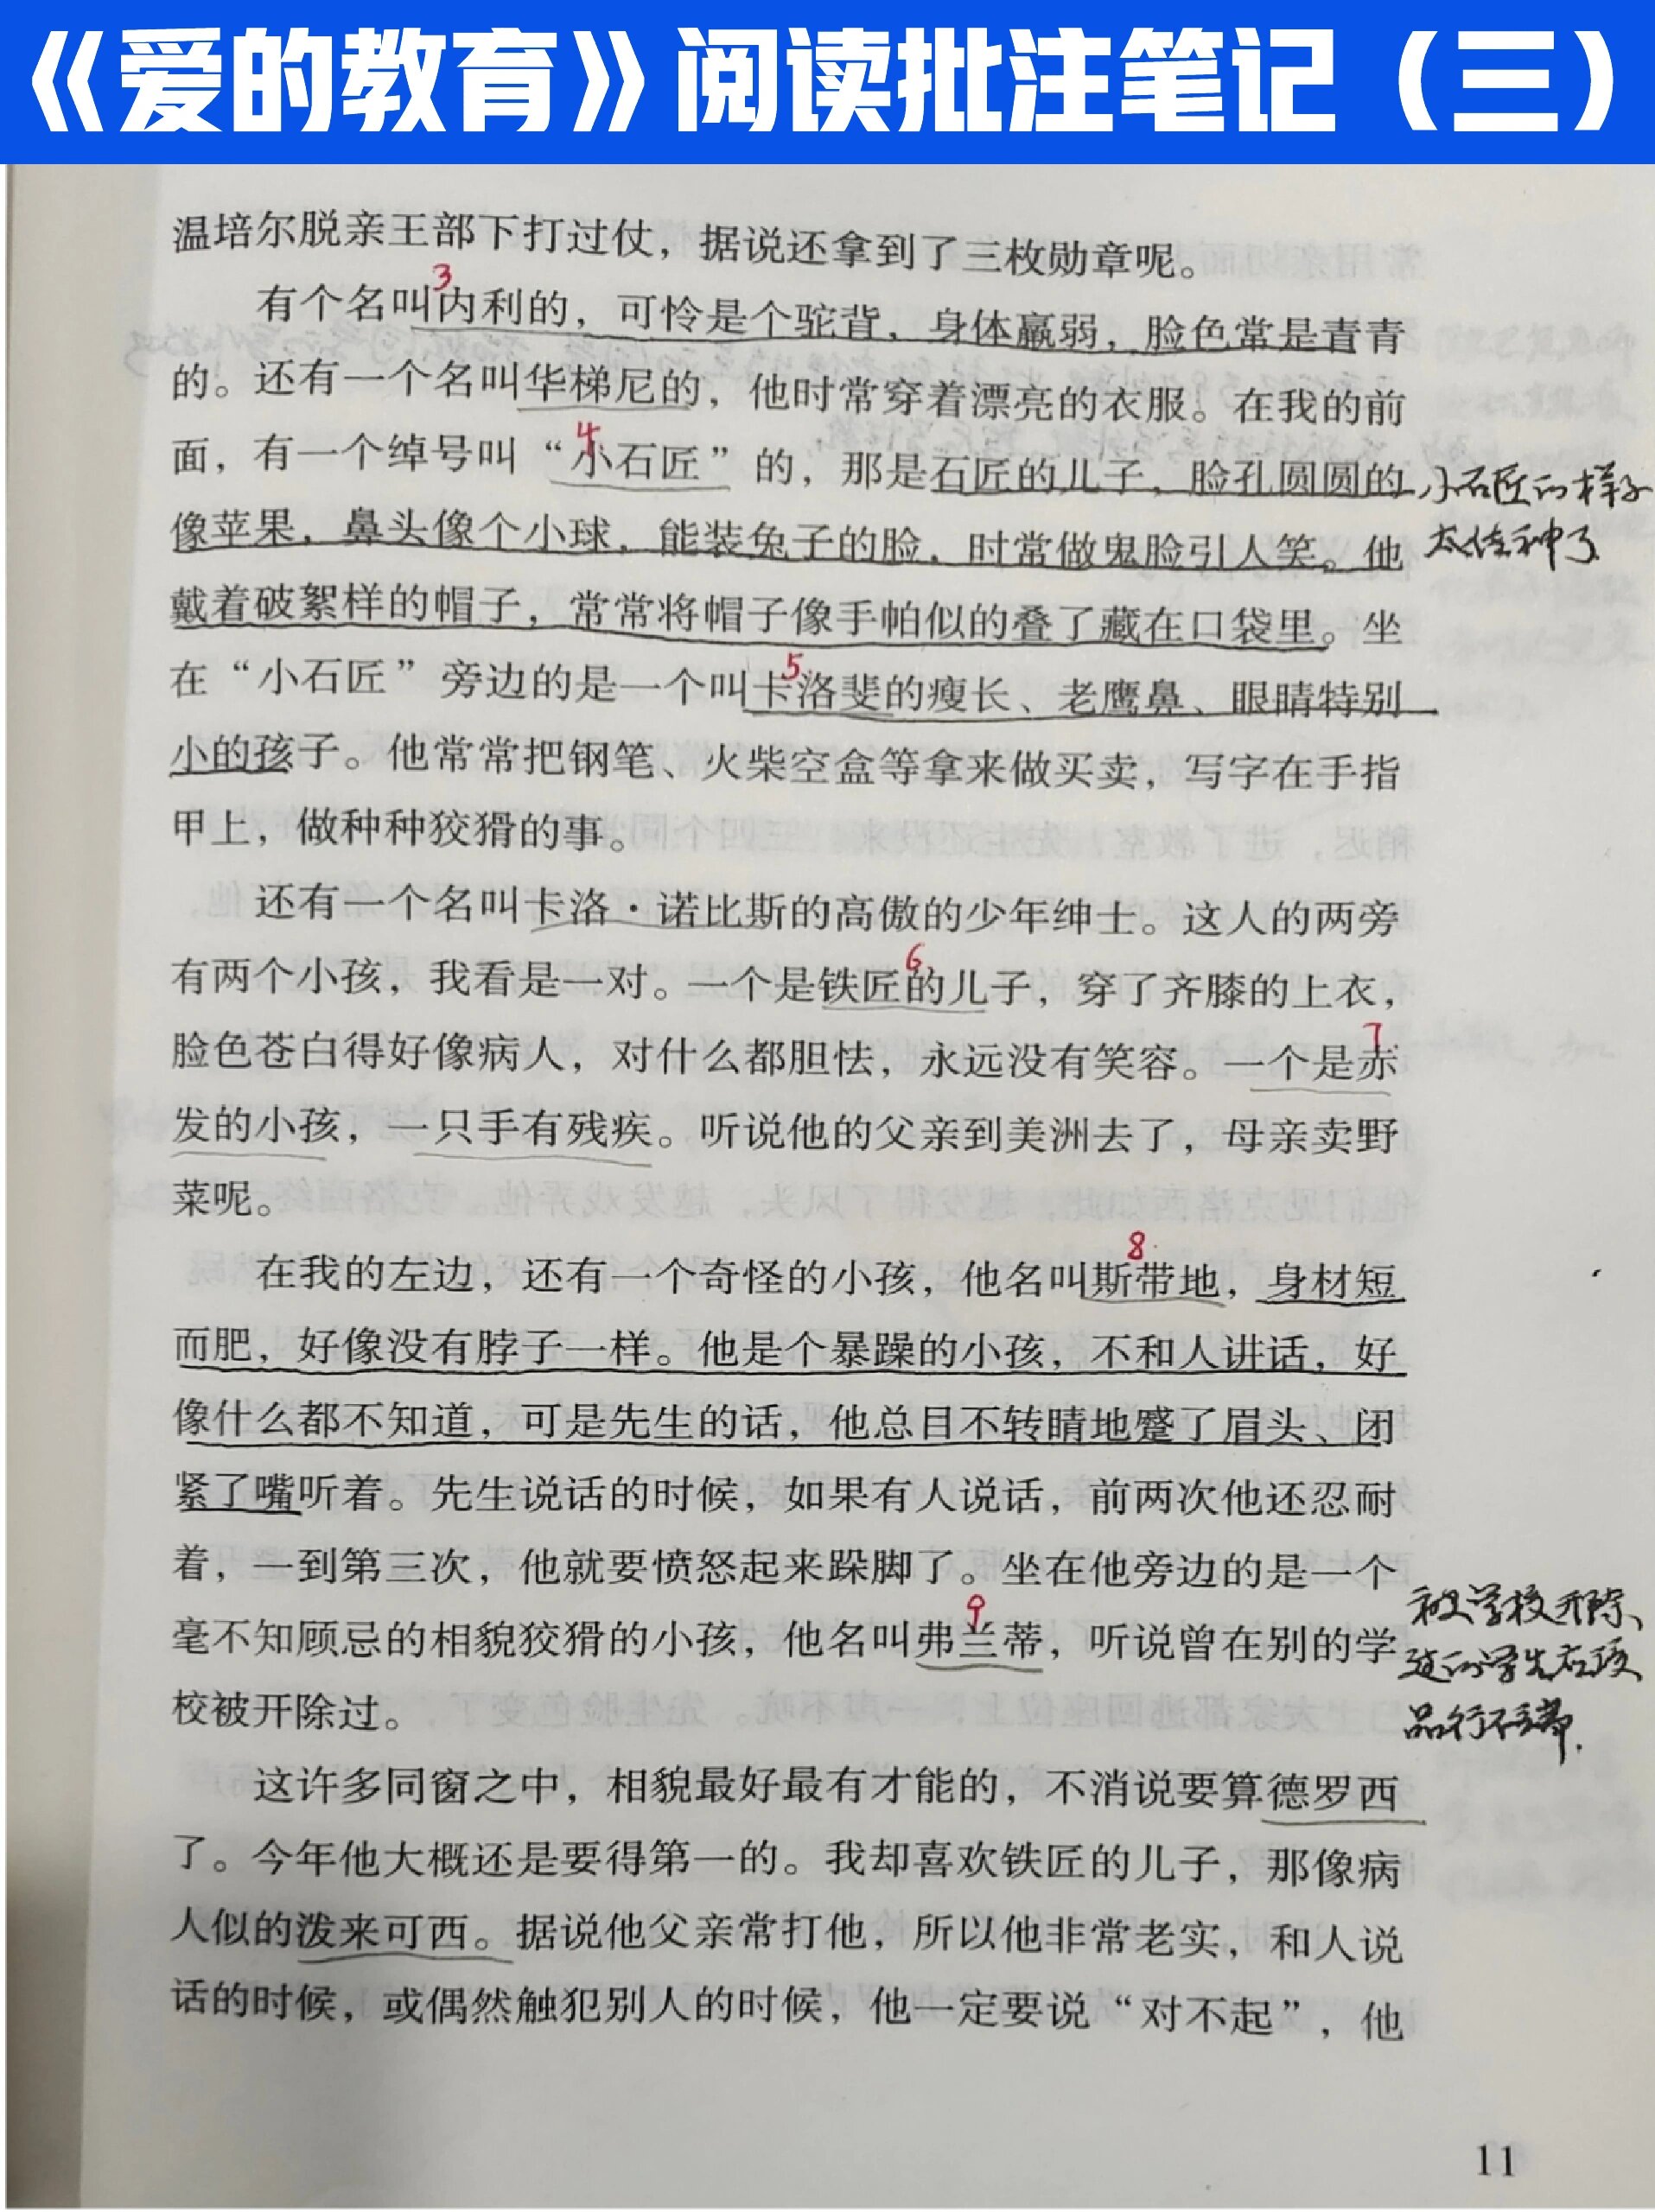 《爱的教育》阅读批注笔记（三）
温培尔脱亲王部下打过仗，据说还拿到了三枚勋章呢。
3
有个名叫内利的，可怜是个驼背，身体羸弱，脸色常是青青
的。还有一个名叫华梯尼的，他时常穿着漂亮的衣服。在我的前
4
面，有一个绰号叫“小石匠”的，那是石匠的儿子，脸孔圆圆的
小石匠的样子
像苹果，鼻头像个小球，能装兔子的脸，时常做鬼脸引人笑。他
太传神了
戴着破絮样的帽子，常常将帽子像手帕似的叠了藏在口袋里。坐
5
在“小石匠”旁边的是一个叫卡洛斐的瘦长、老鹰鼻、眼睛特别
小的孩子。他常常把钢笔、火柴空盒等拿来做买卖，写字在手指
甲上，做种种狡猾的事。
还有一个名叫卡洛·诺比斯的高傲的少年绅士。这人的两旁
6
有两个小孩，我看是一对。一个是铁匠的儿子，穿了齐膝的上衣，
7
脸色苍白得好像病人，对什么都胆怯，永远没有笑容。一个是赤
发的小孩，一只手有残疾。听说他的父亲到美洲去了，母亲卖野
菜呢。
8
在我的左边，还有一个奇怪的小孩，他名叫斯带地，身材短
而肥，好像没有脖子一样。他是个暴躁的小孩，不和人讲话，好
像什么都不知道，可是先生的话，他总目不转睛地蹙了眉头、闭
紧了嘴听着。先生说话的时候，如果有人说话，前两次他还忍耐
着，一到第三次，他就要愤怒起来跺脚了。坐在他旁边的是一个
9
毫不知顾忌的相貌狡猾的小孩，他名叫弗兰蒂，听说曾在别的学
校被开除过。
被学校开除
过的学生应该
品行不端.
这许多同窗之中，相貌最好最有才能的，不消说要算德罗西
了。今年他大概还是要得第一的。我却喜欢铁匠的儿子，那像病
人似的泼来可西。据说他父亲常打他，所以他非常老实，和人说
话的时候，或偶然触犯别人的时候，他一定要说“对不起”，他
11